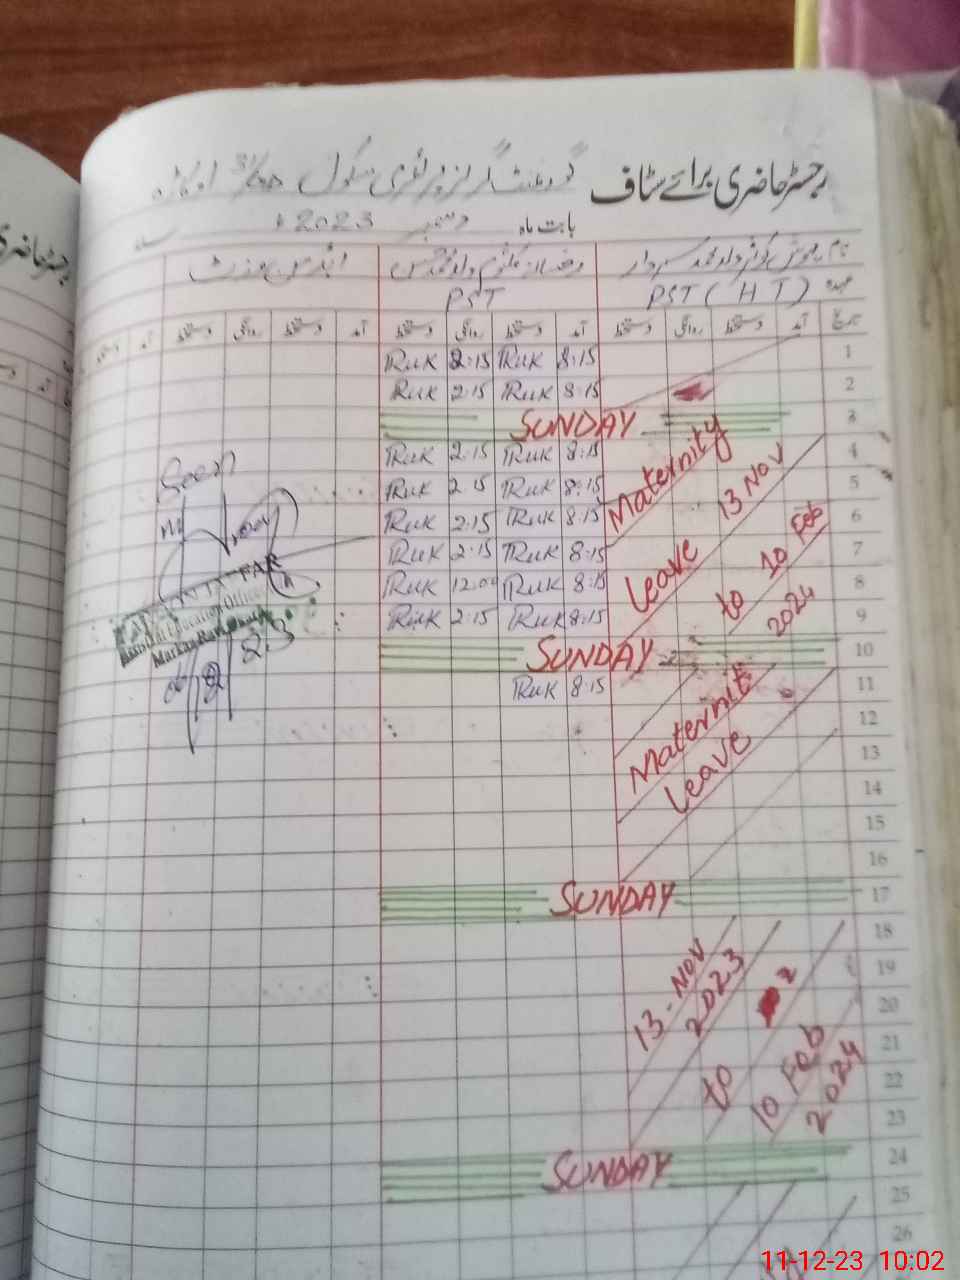 رجسٹر حاضری برائے سٹاف
گورنمنٹ گرلز پرائمری سکول
بابت ماہ دسمبر 2023ء
نام
PST
عہدہ PST ( H T )
تاریخ آمد دستخط روانگی دستخط آمد دستخط روانگی دستخط آمد دستخط روانگی دستخط آمد
1 8:15 RuK 2:15 RuK
2 8:15 RuK 2:15 RuK
3 SUNDAY
4 8:15 RuK 2:15 RuK
5 8:15 RuK 2:15 RuK
6 8:15 RuK 2:15 RuK
7 8:15 RuK 2:15 RuK
8 8:15 RuK 12:00 RuK
9 8:15 RuK 2:15 RuK
10 SUNDAY
11 8:15 RuK
12
13
14
15
16
17 SUNDAY
18
19
20
21
22
23
24 SUNDAY
25
26
Maternity
Leave
13 Nov
to 10 Feb
2024
Maternit
Leave
13-Nov
2023
to
10 Feb
2024
Seen
Assistant Education Officer
Markaz
11-12-23 10:02